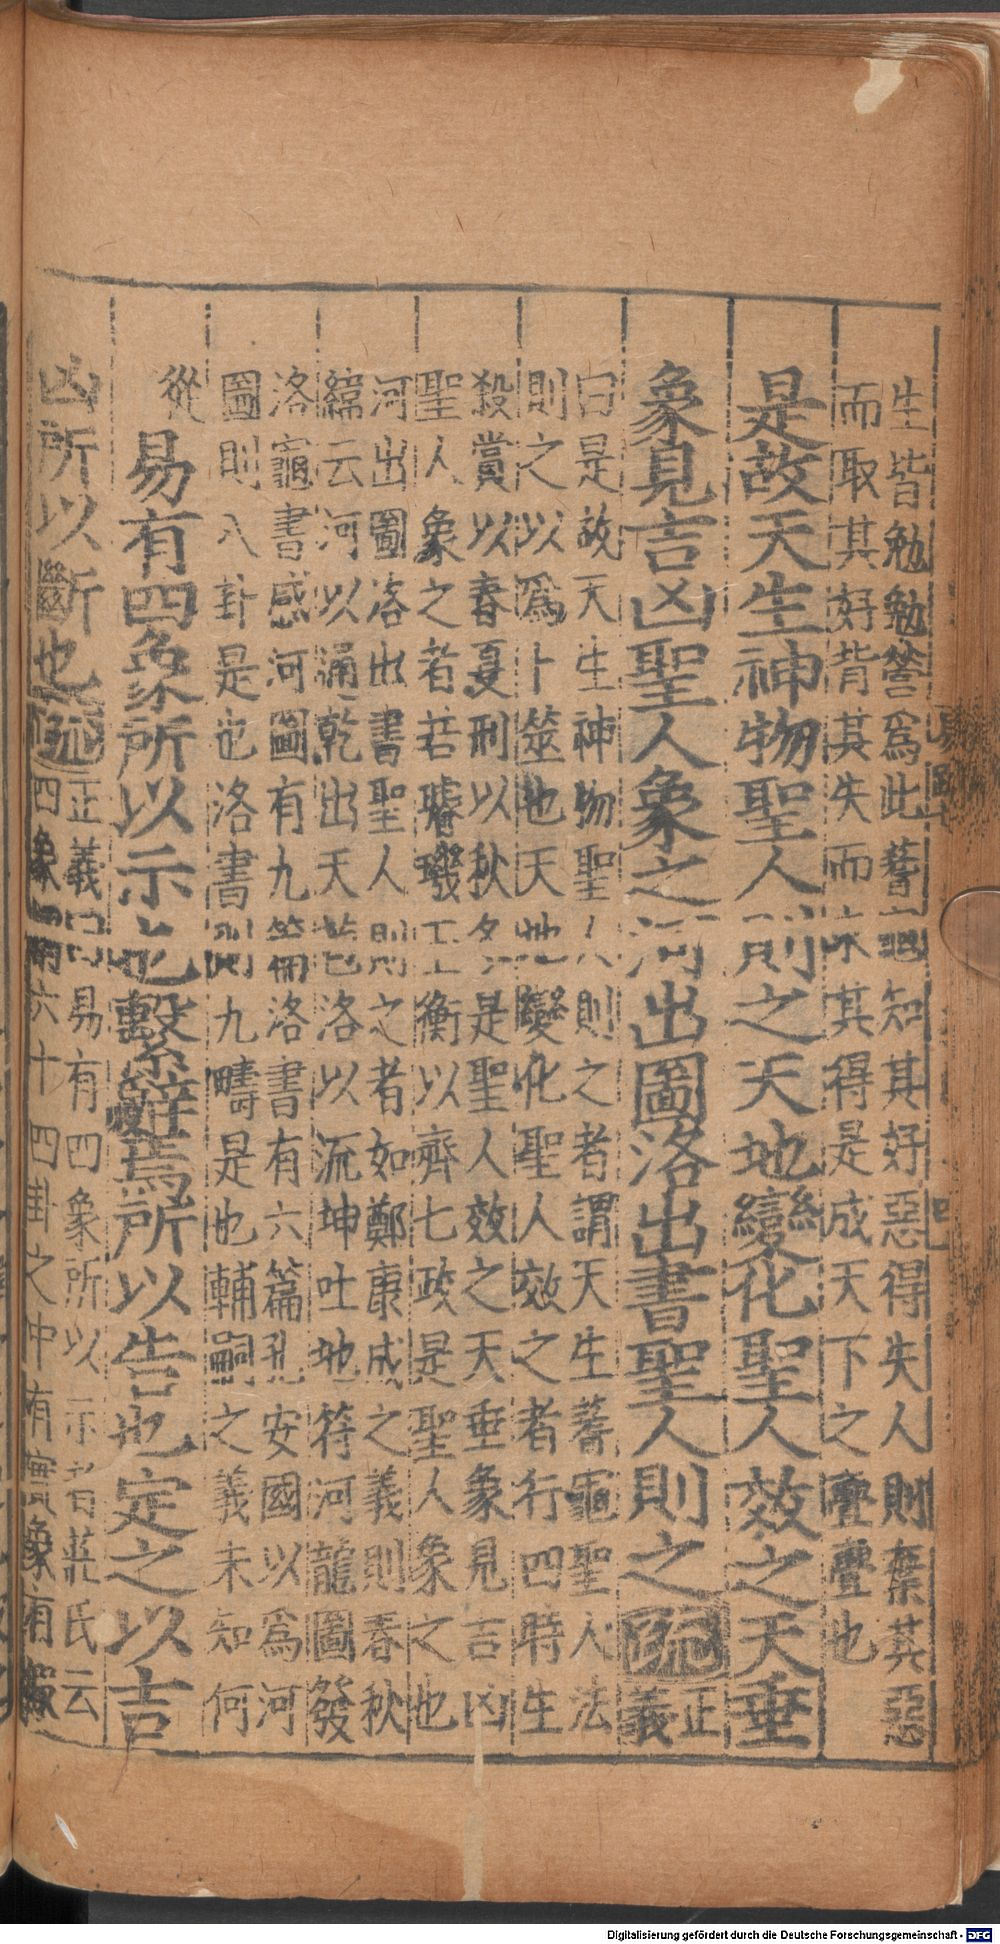 生皆勉勉營爲此蓍知其好惡得失人則棄其惡
而取其好背其失而求其得是成天下之亹亹也
是故天生神物聖人則之天地變化聖人效之天垂
象見吉凶聖人象之河出圖洛出書聖人則之疏正義
曰是故天生神物聖人則之者謂天生蓍龜聖人法
則之以爲卜筮也天地變化聖人效之者行四時生
殺賞以春夏刑以秋冬是聖人效之天垂象見吉凶
聖人象之者若璿璣玉衡以齊七政是聖人象之也
河出圖洛出書聖人則之者如鄭康成之義則春秋
緯云河以通乾出天苞洛以流坤吐地符河龍圖發
洛龜書感河圖有九篇洛書有六篇孔安國以爲河
圖則八卦是也洛書則九疇是也輔嗣之義未知何
從
易有四象所以示也繫辭焉所以告也定之以吉
凶所以斷也疏正義曰易有四象所以示者莊氏云
四象謂六十四卦之中有實象有假
Digitalisierung gefördert durch die Deutsche Forschungsgemeinschaft - DFG